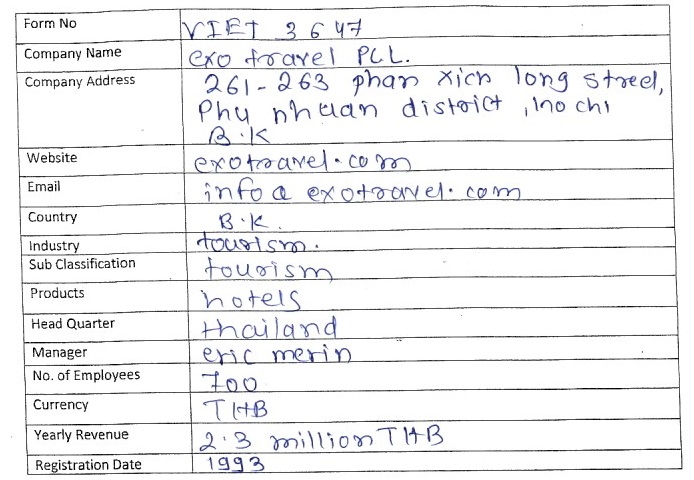 Form No VIET 3647
Company Name exo travel PLL.
Company Address 261-263 phan xich long street,
Phu nhuan district , ho chi
B.K
Website exotravel.com
Email info@exotravel.com
Country B.K.
Industry tourism.
Sub Classification tourism
Products hotels
Head Quarter thailand
Manager eric merin
No. of Employees 700
Currency THB
Yearly Revenue 2.3 million THB
Registration Date 1993